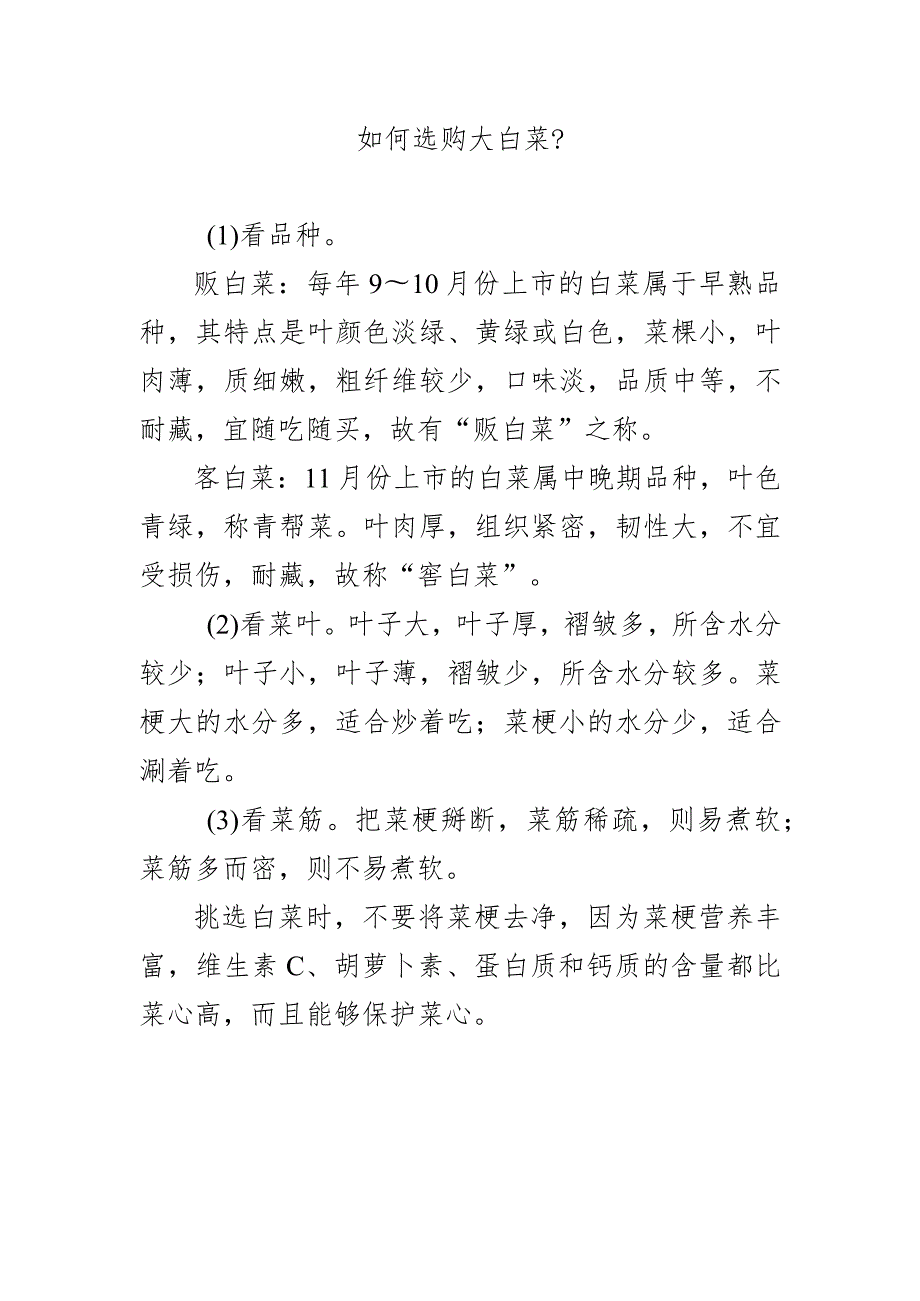 如何选购大白菜?
(1)看品种。
贩白菜：每年 9～10 月份上市的白菜属于早熟品
种，其特点是叶颜色淡绿、黄绿或白色，菜棵小，叶
肉薄，质细嫩，粗纤维较少，口味淡，品质中等，不
耐藏，宜随吃随买，故有“贩白菜”之称。
客白菜：11 月份上市的白菜属中晚期品种，叶色
青绿，称青帮菜。叶肉厚，组织紧密，韧性大，不宜
受损伤，耐藏，故称“窖白菜”。
(2)看菜叶。叶子大，叶子厚，褶皱多，所含水分
较少；叶子小，叶子薄，褶皱少，所含水分较多。菜
梗大的水分多，适合炒着吃；菜梗小的水分少，适合
涮着吃。
(3)看菜筋。把菜梗掰断，菜筋稀疏，则易煮软；
菜筋多而密，则不易煮软。
挑选白菜时，不要将菜梗去净，因为菜梗营养丰
富，维生素 C、胡萝卜素、蛋白质和钙质的含量都比
菜心高，而且能够保护菜心。